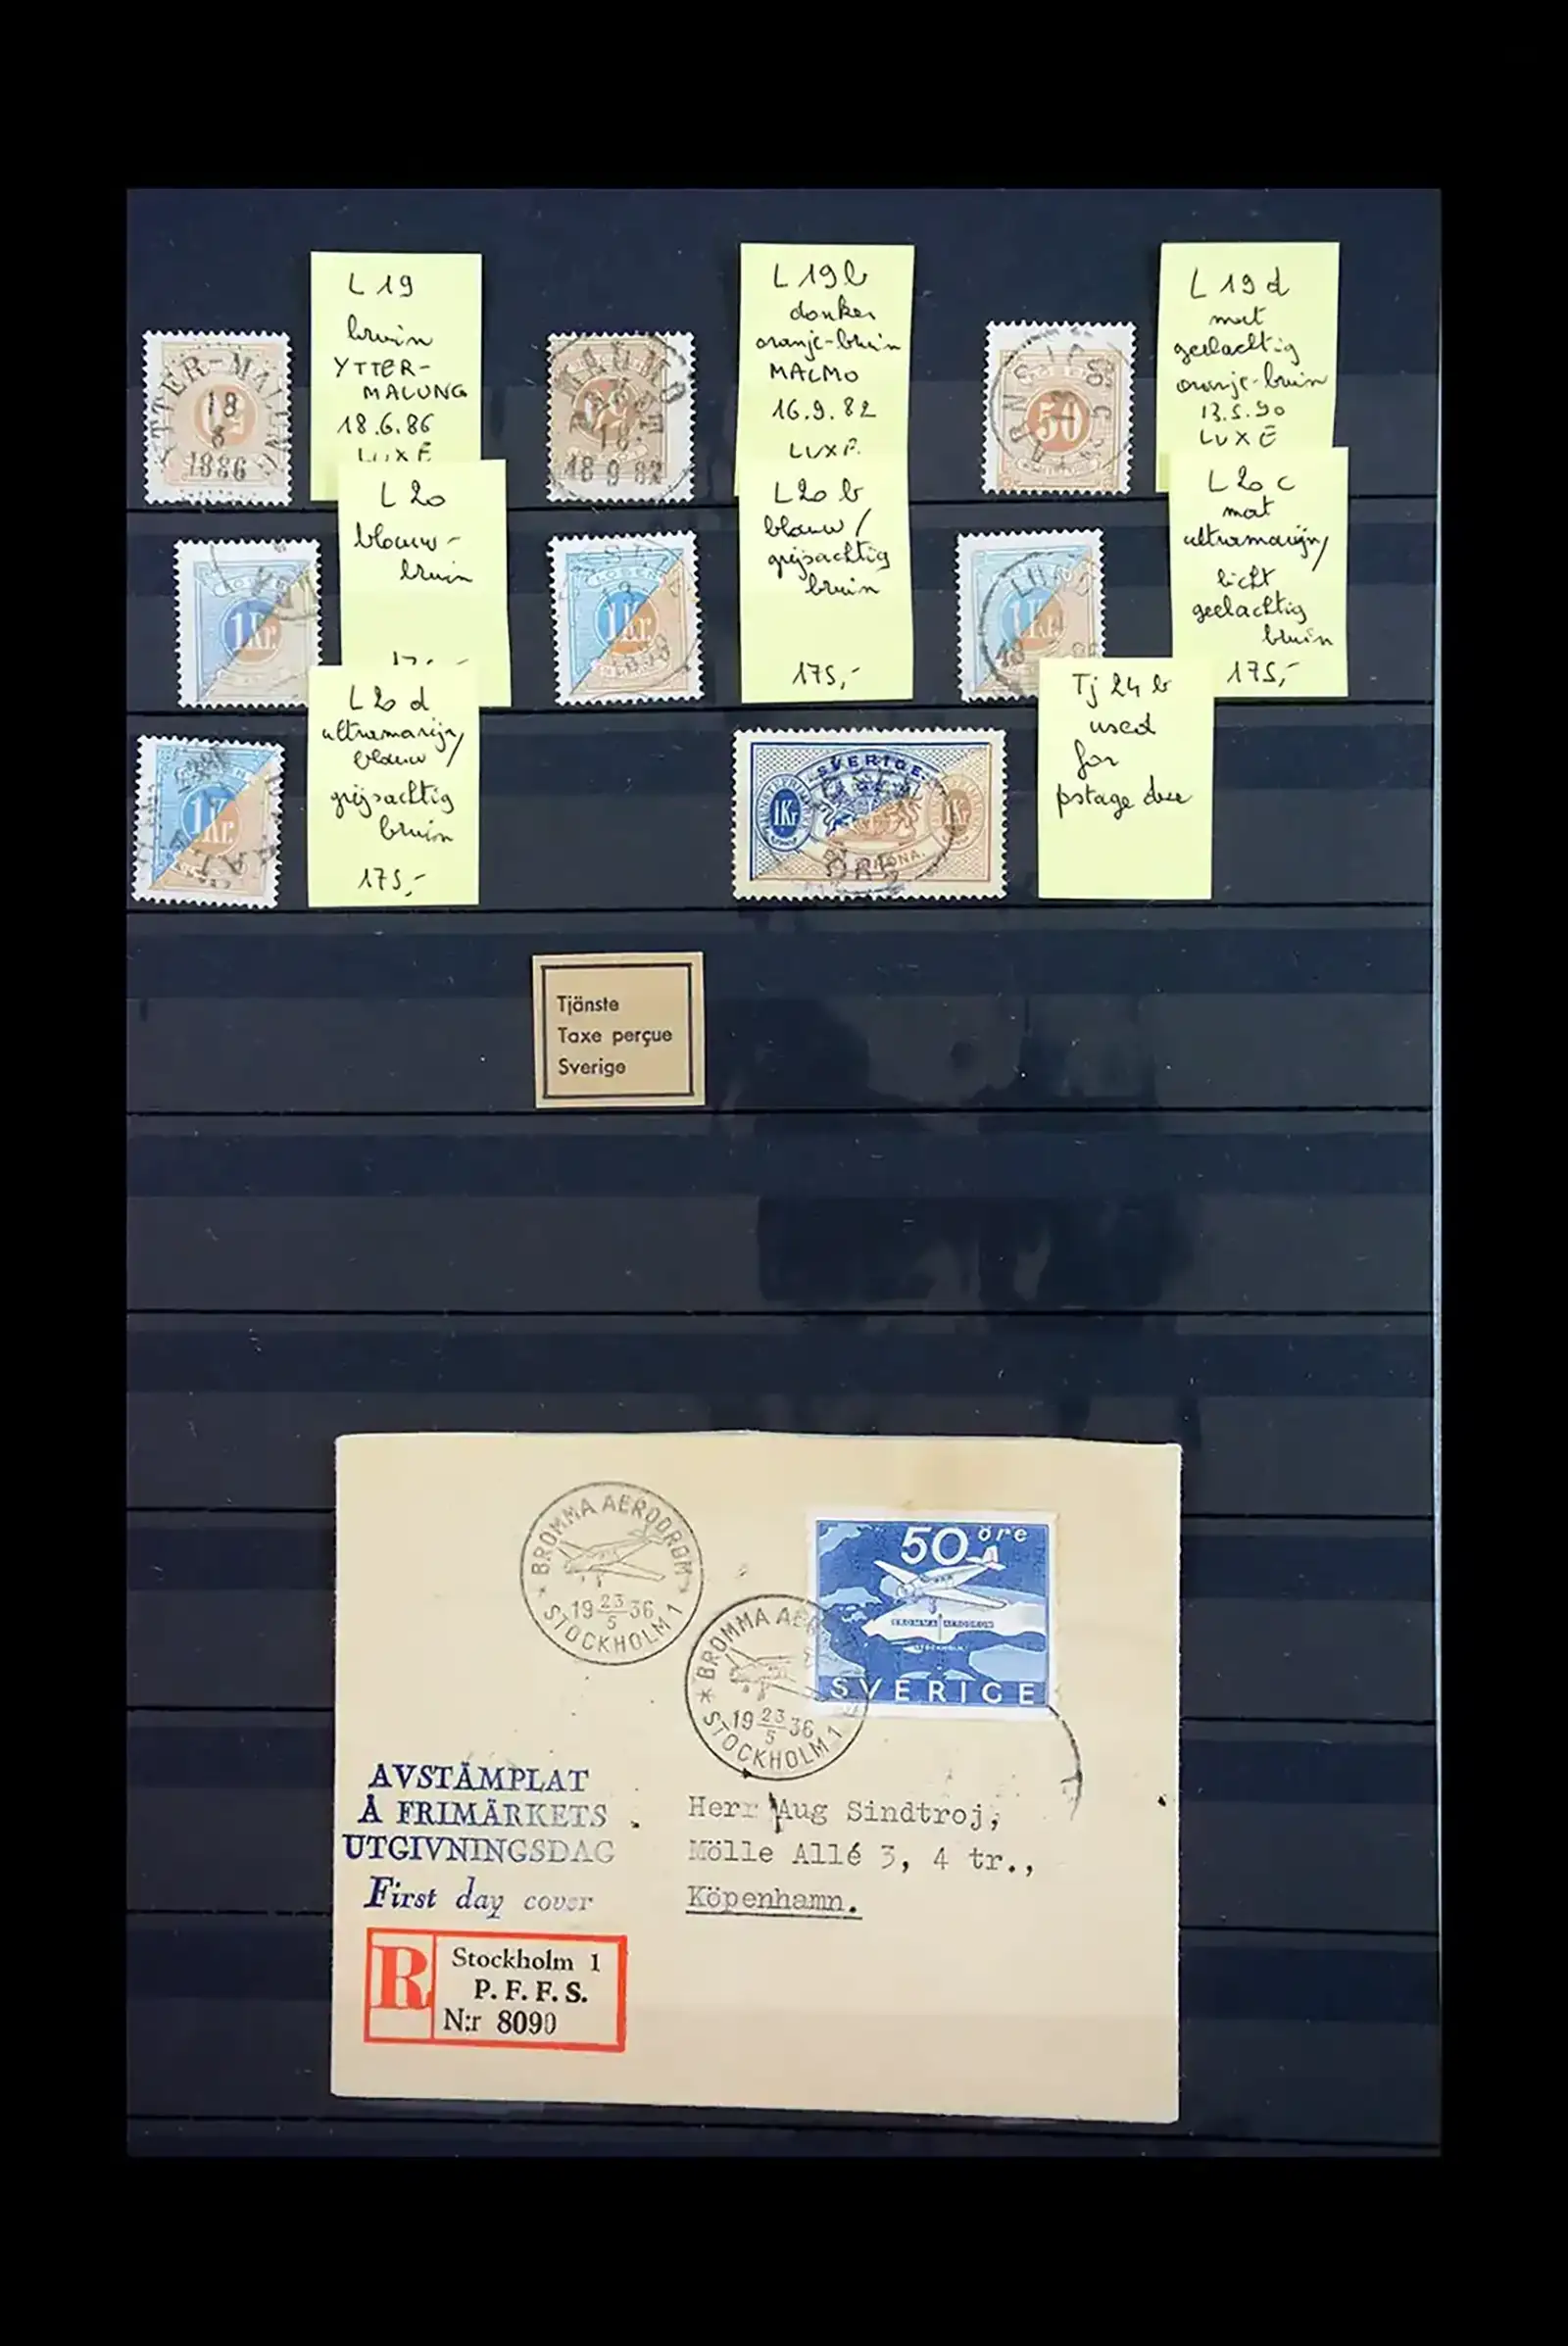 YTTER-MALUNG
18
6
1886
50
L 19
bruin
YTTER-
MALUNG
18.6.86
LUXE
MALMÖ
18 9 82
50
L 19 b
donker
oranje-bruin
MALMO
16.9.82
LUXE
50
13 5
L 19 d
mat
geelachtig
oranje-bruin
13.5.90
LUXE
LÖSEN
1 Kr.
L 20
blauw-
bruin
LÖSEN
1 Kr.
L 20 b
blauw/
grijsachtig
bruin
175,-
LUND
1 Kr.
L 20 c
mat
ultramarijn/
licht
geelachtig
bruin
175,-
1 Kr.
L 20 d
ultramarijn/
blauw/
grijsachtig
bruin
175,-
SVERIGE
1 Kr
1 Kr
KRONA.
Tj 24 b
used
for
pstage due
Tjänste
Taxe perçue
Sverige
* BROMMA AERODROM *
19 23/5 36
STOCKHOLM 1
50 öre
BROMMA AERODROM
STOCKHOLM
SVERIGE
* BROMMA AER
19 23/5 36
STOCKHOLM 1
AVSTÄMPLAT
Å FRIMÄRKETS
UTGIVNINGSDAG
First day cover
Herr Aug Sindtroj,
Mölle Allé 3, 4 tr.,
Köpenhamn.
R
Stockholm 1
P. F. F. S.
N:r 8090